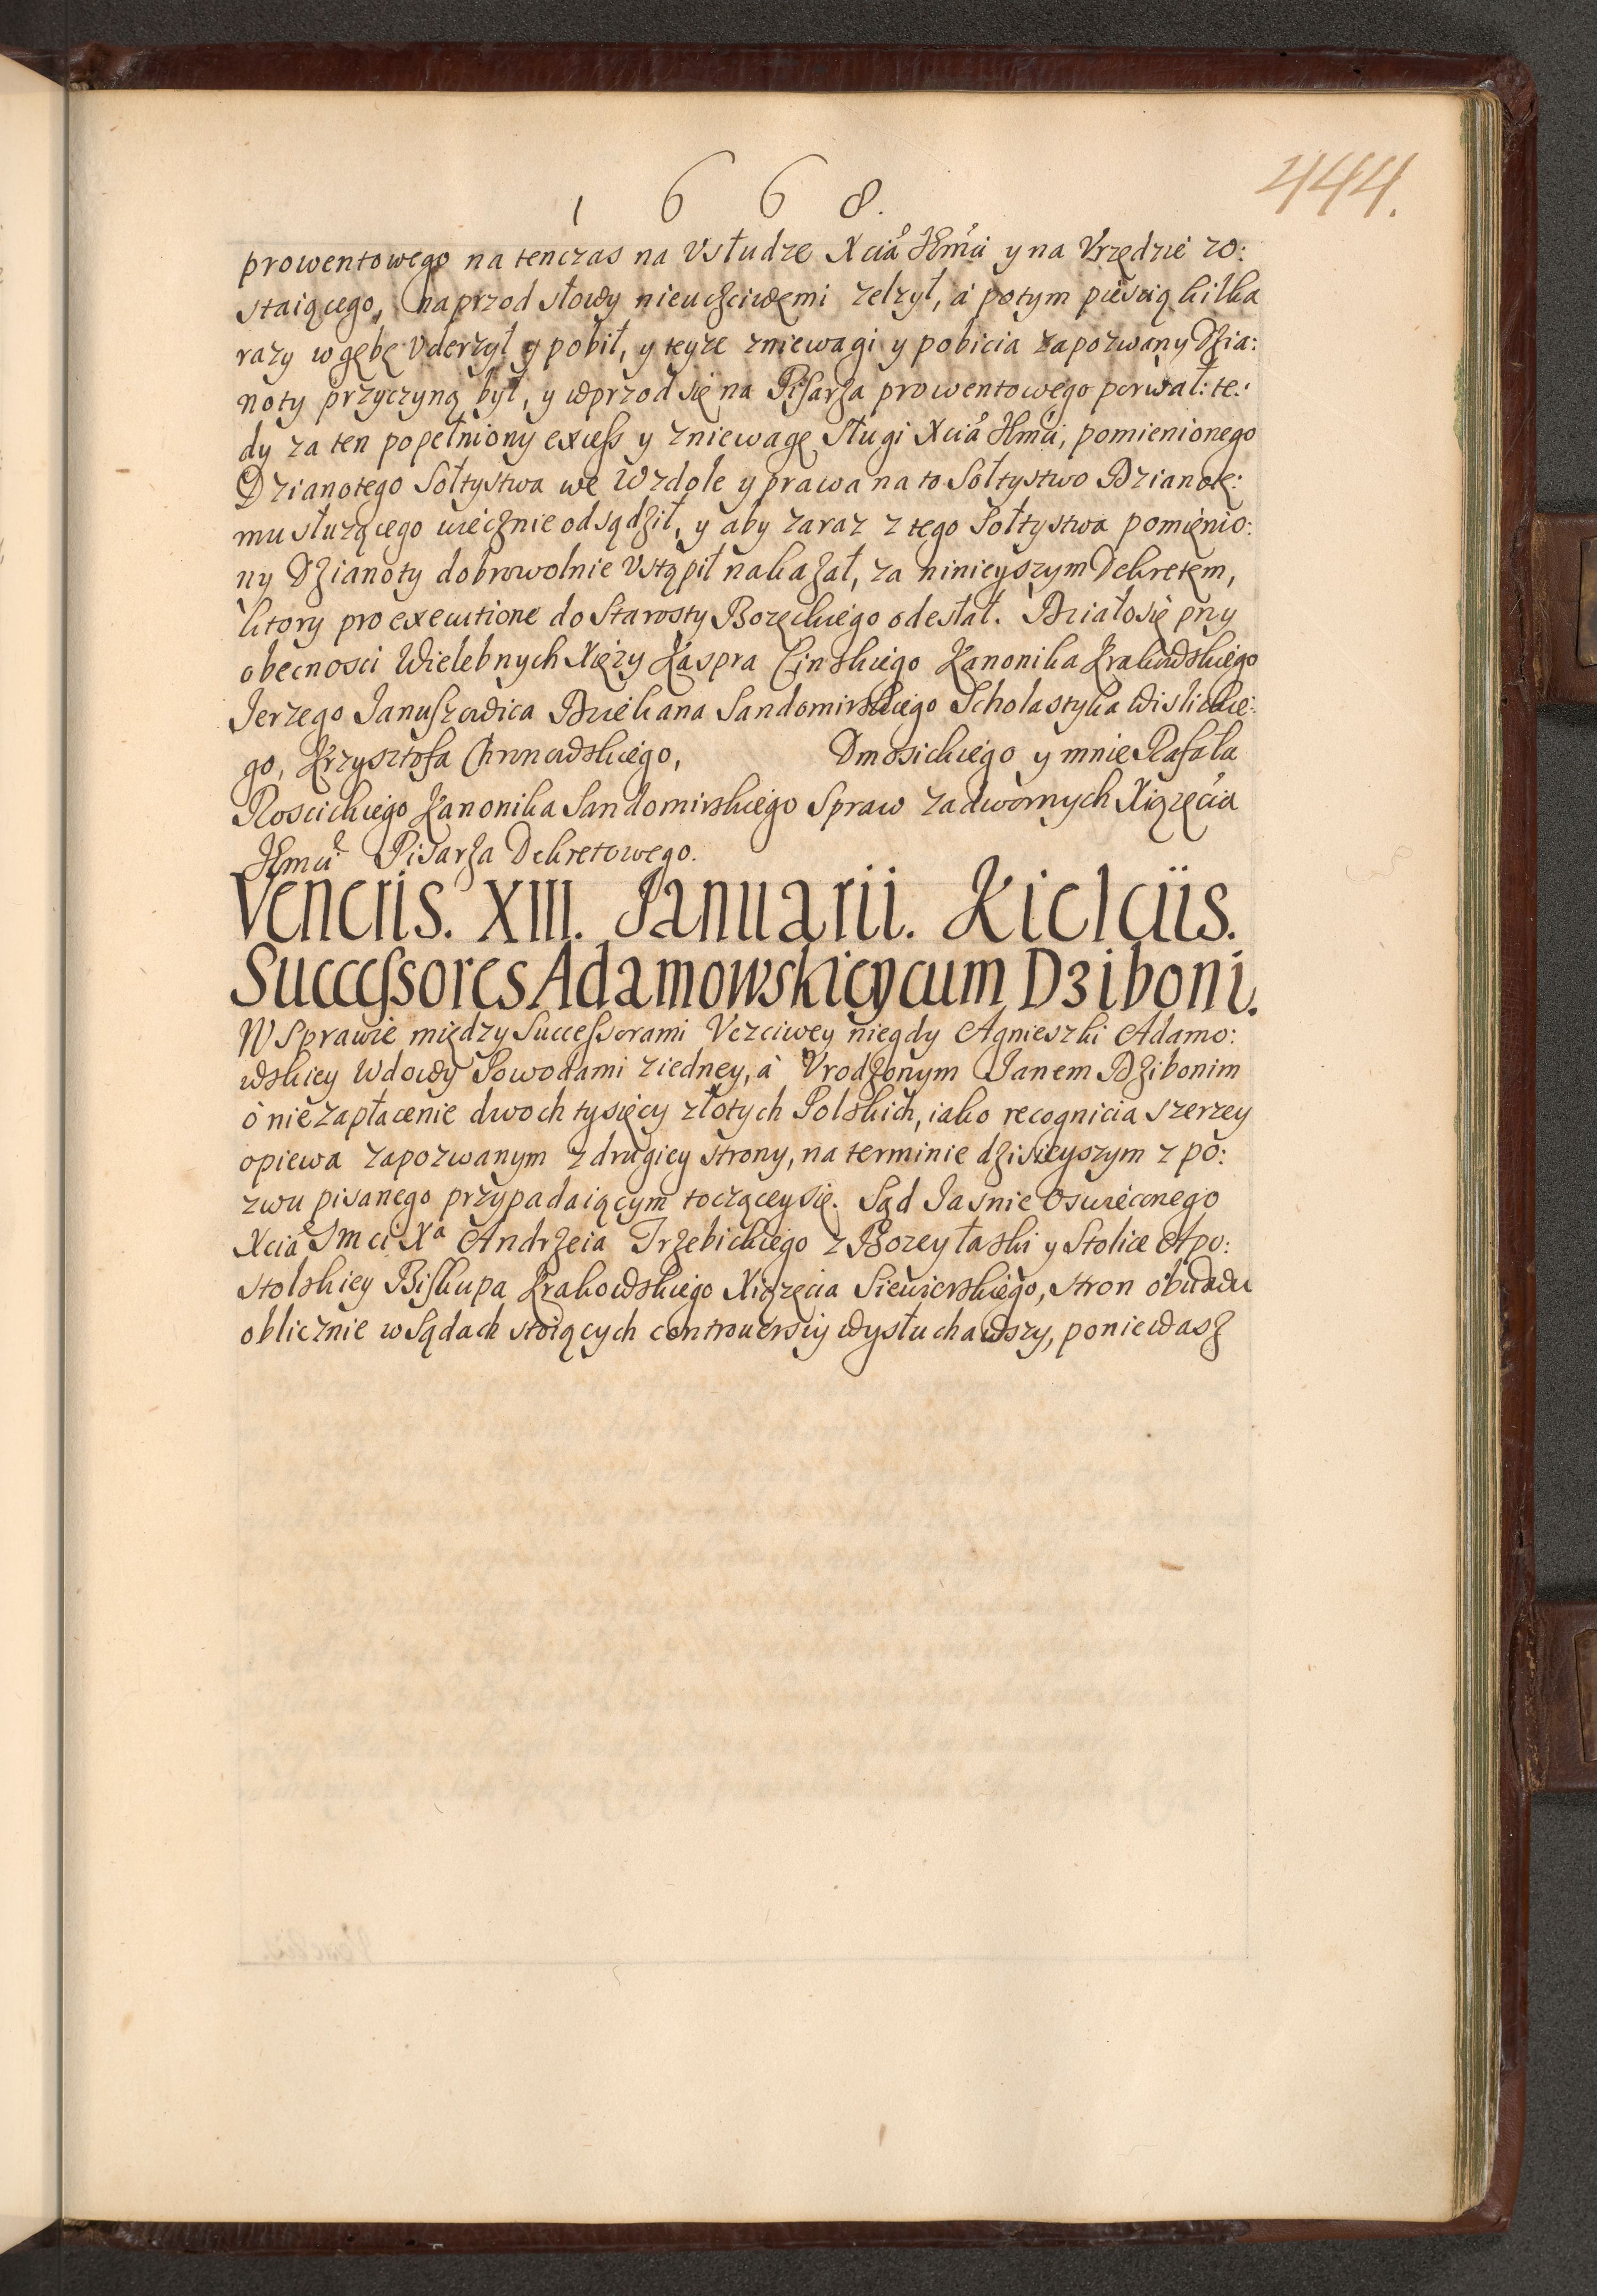 1668.
444.
prowentowego na tenczas na Vsłudze Xcia Jmci y na Vrzędzie zo:
staiącego, naprzod słowy nieuczciwemi zelzył, á potym pięscią kilka
razy w gębę Vderzył y pobił, y teyze zniewagi y pobicia zapozwany Dzia:
noty przyczyną był, y wprzod się na Pisarza prowentowego porwał: te:
dy za ten popełniony excess y zniewagę Sługi Xcia Jmci, pomienionego
Dzianotego Sołtystwa we Wzdole y prawa na to Sołtystwo Dzianote:
mu słuzącego wiecznie odsądził, y aby zaraz z tego Sołtystwa pomienio:
ny Dzianoty dobrowolnie Vstąpił nakazał, za ninieyszym Dekretem,
ktory pro executione do Starosty Bozęckiego odesłał. Działo się przy
obecnosci Wielebnych Xięzy Kaspra Cinskiego Kanonika Krakowskiego
Jerzego Januszowica Dziekana Sandomirskiego Scholastyka Wislickie:
go, Krzysztofa Chronowskiego, Dmosickiego y mnie Rafała
Roscickiego Kanonika Sandomirskiego Spraw zadwornych Xiązęcia
Jmci Pisarza Dekretowego.
Veneris. XIII. Januarii. Kielciis.
Successores Adamowskiey cum Dziboni.
W Sprawie między Successorami Vczciwey niegdy Agnieszki Adamo:
wskiey Wdowy Powodami z iedney, á Vrodzonym Janem Dzibonim
ó niezapłacenie dwoch tysięcy złotych Polskich, iako recognicia szerzey
opiewa zapozwanym z drugiey strony, na terminie dzisieyszym z po:
zwu pisanego przypadaiącym toczącey się. Sąd Jasnie Oswieconego
Xcia Jmci Xa Andrzeia Trzebickiego z Bozey łaski y Stolice Apo:
stolskiey Biskupa Krakowskiego Xiązęcia Siewierskiego, stron obudwu
oblicznie w Sądach stoiących controuersiy wysłuchawszy, poniewasz